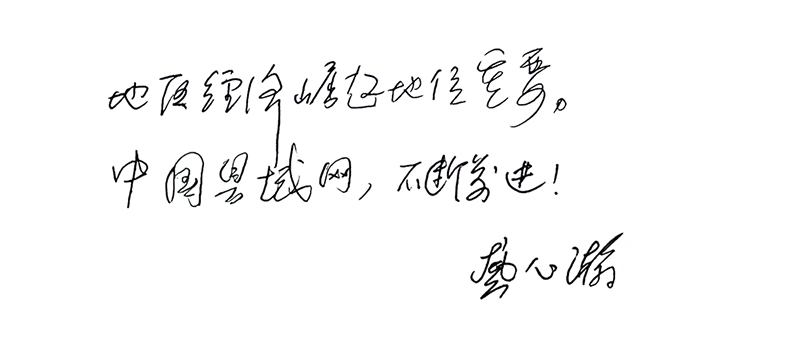 地区经济崛起地位重要。
中国县域网，不断前进！
艺心瀚